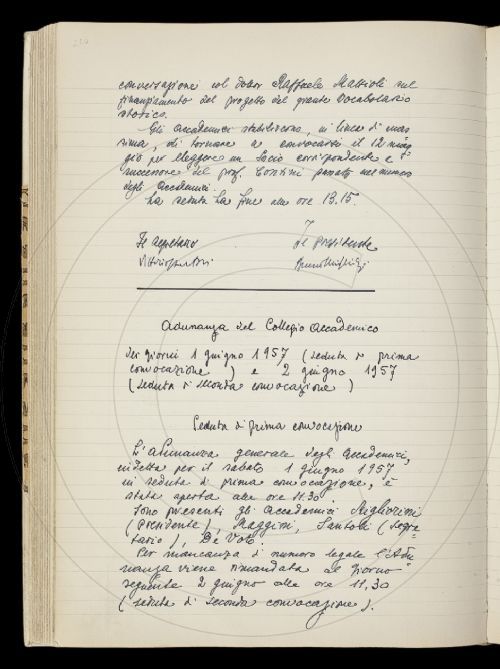 conversazione col dottor Raffaele Mattioli sul
finanziamento del progetto del grande Vocabolario
storico.
Gli Accademici stabiliscono, in linea di mas
sima, di tornare a convocarsi il 12 mag
gio per eleggere un Socio corrispondente e il
successore del prof. Contini passato nel numero
degli Accademici.
La seduta ha fine alle ore 13.15.
Il Segretario
Il Presidente
Adunanza del Collegio Accademico
dei giorni 1 giugno 1957 (seduta di prima
convocazione) e 2 giugno 1957
(seduta di seconda convocazione)
Seduta di prima convocazione
L'adunanza generale degli Accademici,
indetta per il sabato 1 giugno 1957
in seduta di prima convocazione, è
stata aperta alle ore 11.30
Sono presenti gli Accademici Migliorini
(Presidente), Maggini, Santoli (Segre-
tario), De Voto.
Per mancanza di numero legale l'Adu
nanza viene rimandata al giorno
seguente 2 giugno alle ore 11,30
(seduta di seconda convocazione).